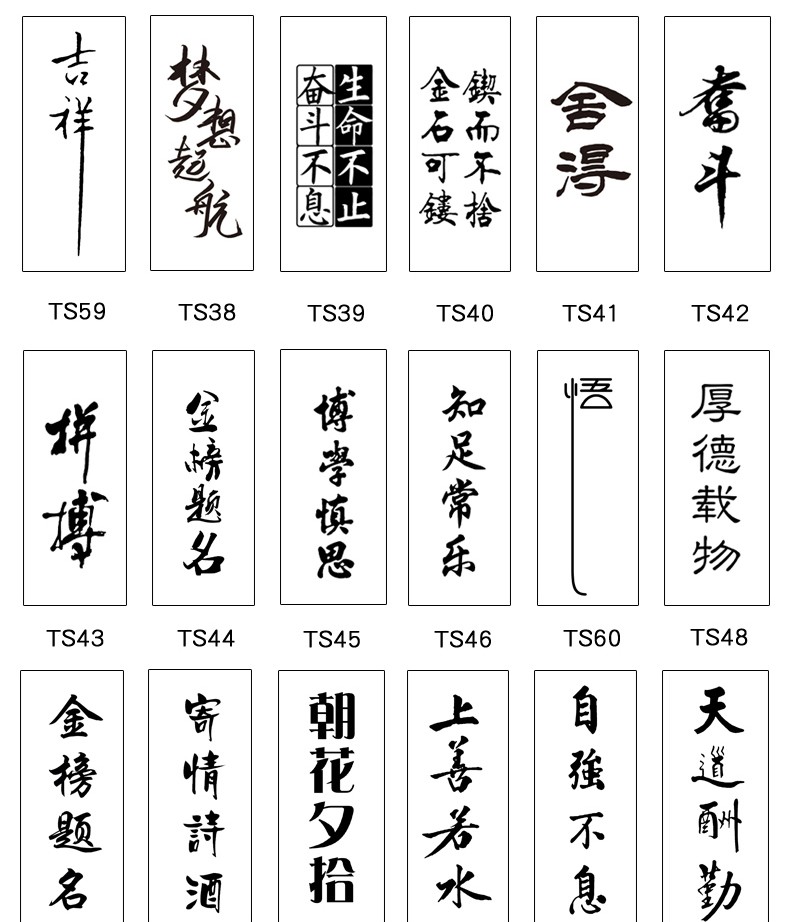 吉祥
梦想起航
生命不止
奋斗不息
鍥而不捨
金石可鏤
舍得
奮斗
TS59
TS38
TS39
TS40
TS41
TS42
拼搏
金榜题名
博學慎思
知足常乐
悟
厚德载物
TS43
TS44
TS45
TS46
TS60
TS48
金榜题名
寄情詩酒
朝花夕拾
上善若水
自強不息
天道酬勤